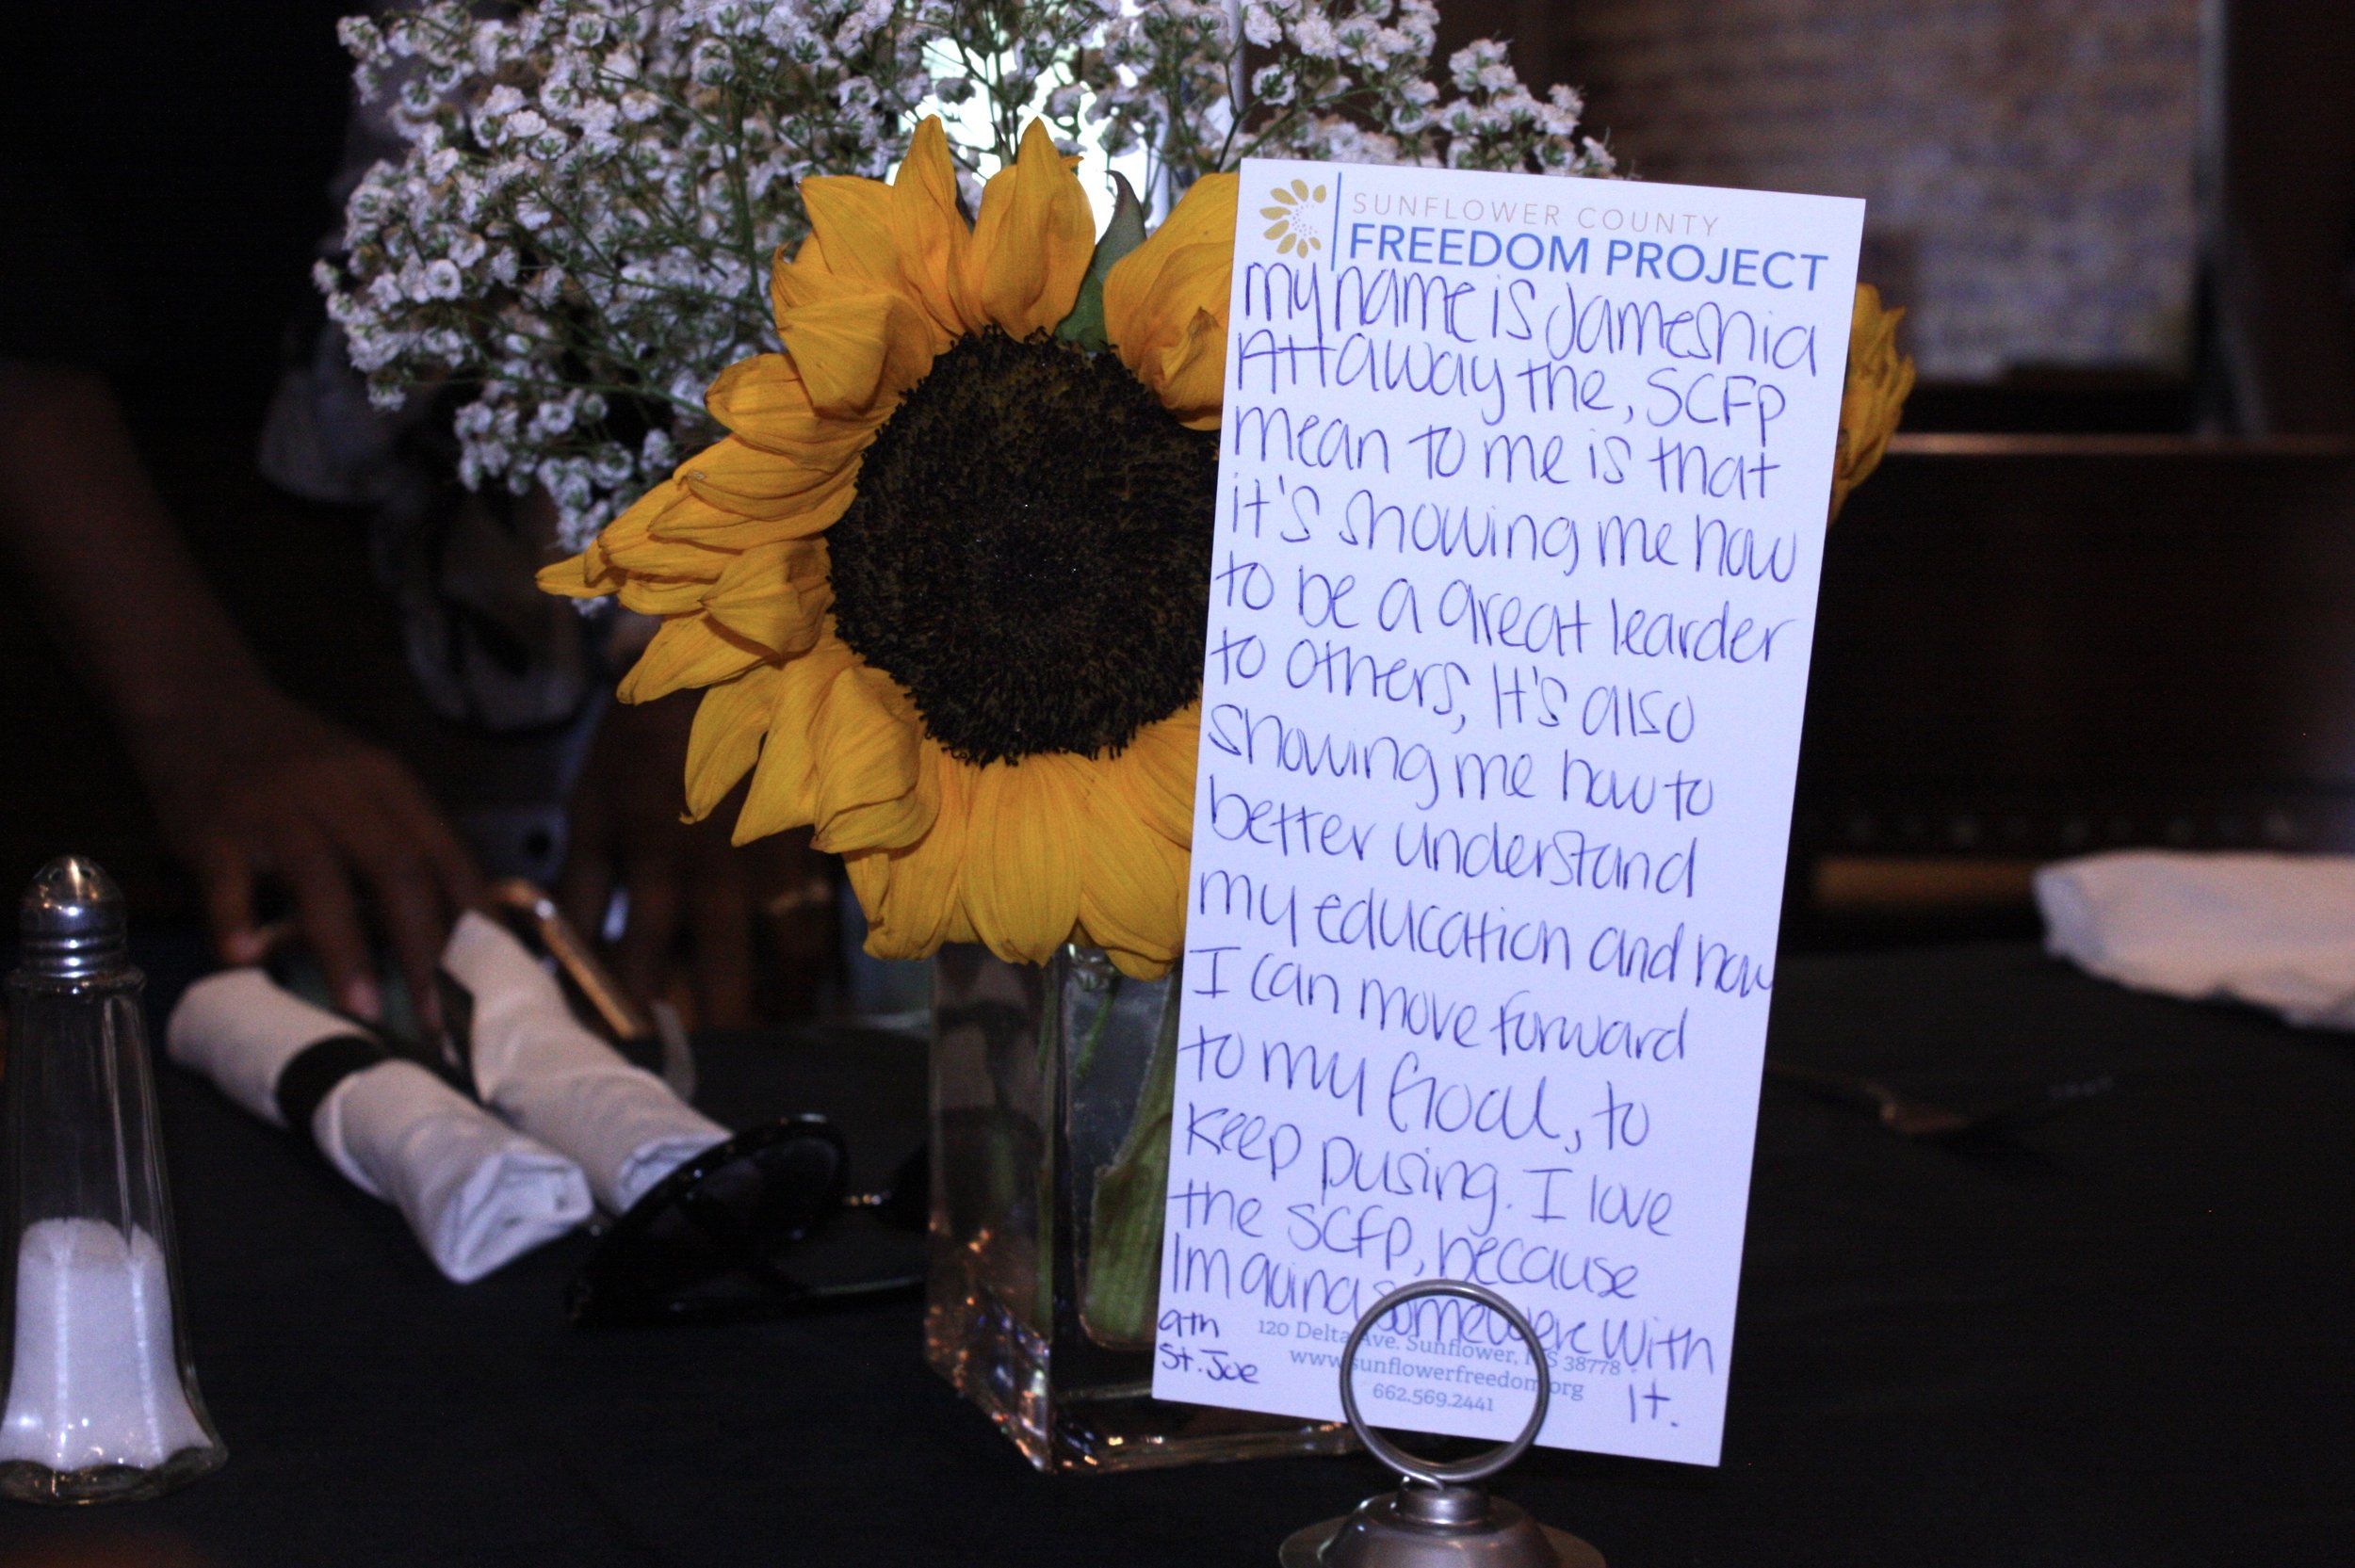 SUNFLOWER COUNTY
FREEDOM PROJECT
my name is Jameshia
Attaway the, SCFP
mean to me is that
it's showing me how
to be a great learder
to others, It's also
showing me how to
better understand
my education and how
I can move forward
to my Goal, to
keep pusing. I love
the SCFP, because
Im going somewere with
it.
9th
St. Joe
120 Delta Ave. Sunflower, MS 38778
www.sunflowerfreedom.org
662.569.2441